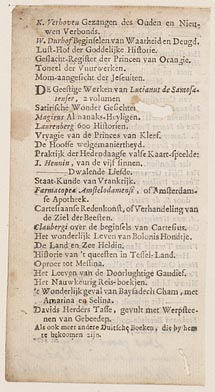 K. Verhoven Gezangen des Ouden en Nieu-
wen Verbonds.
W. Durhof Beginselen van Waarheid en Deugd.
Lust-Hof der Goddelijke Historie.
Geslacht-Register der Princen van Oranje.
Toneel der Vuurwerken.
Mom-aangesicht der Jesuiten.
DE Geestige Werken van Lucianus de Samosa-
tenser, 2 volumen
Satirische Wonder Gesichten
Magirus Almanaks-Hyligen.
Laurenberg 600 Historien.
Vryagie van de Princes van Kleef.
De Hoofse welgemaniertheyd.
Praktijk der Hedendaagse valse Kaart-speelder
J. Hennin, van de vijf sinnen.
Dwalende Liefde.
Staat-Kunde van Vrankrijk.
Farmacopœa Amstelodamensis, of Amsterdam-
se Apotheek.
Cartesiaanse Redenkonst, of Verhandeling van
de Ziel der Beesten.
Clauberg over de beginsels van Cartesius.
Het wonderlijk Leven van Bolonis Hondtje.
De Land en Zee Heldin.
Historie van 't queesten in Tessel-Land.
Oproer tot Messina.
Het Leeven van de Doorluchtige Gaudief.
Het Nauwkeurig Reis-boekjen.
't Wonderlijk geval van Baysadech Cham, met
Amarina en Selina.
Davids Herders Tasse, gevult met Werpstee-
nen van Gebeeden.
Als ook meer andere Duitsche Boeken, die by hem
te bekomen zijn.